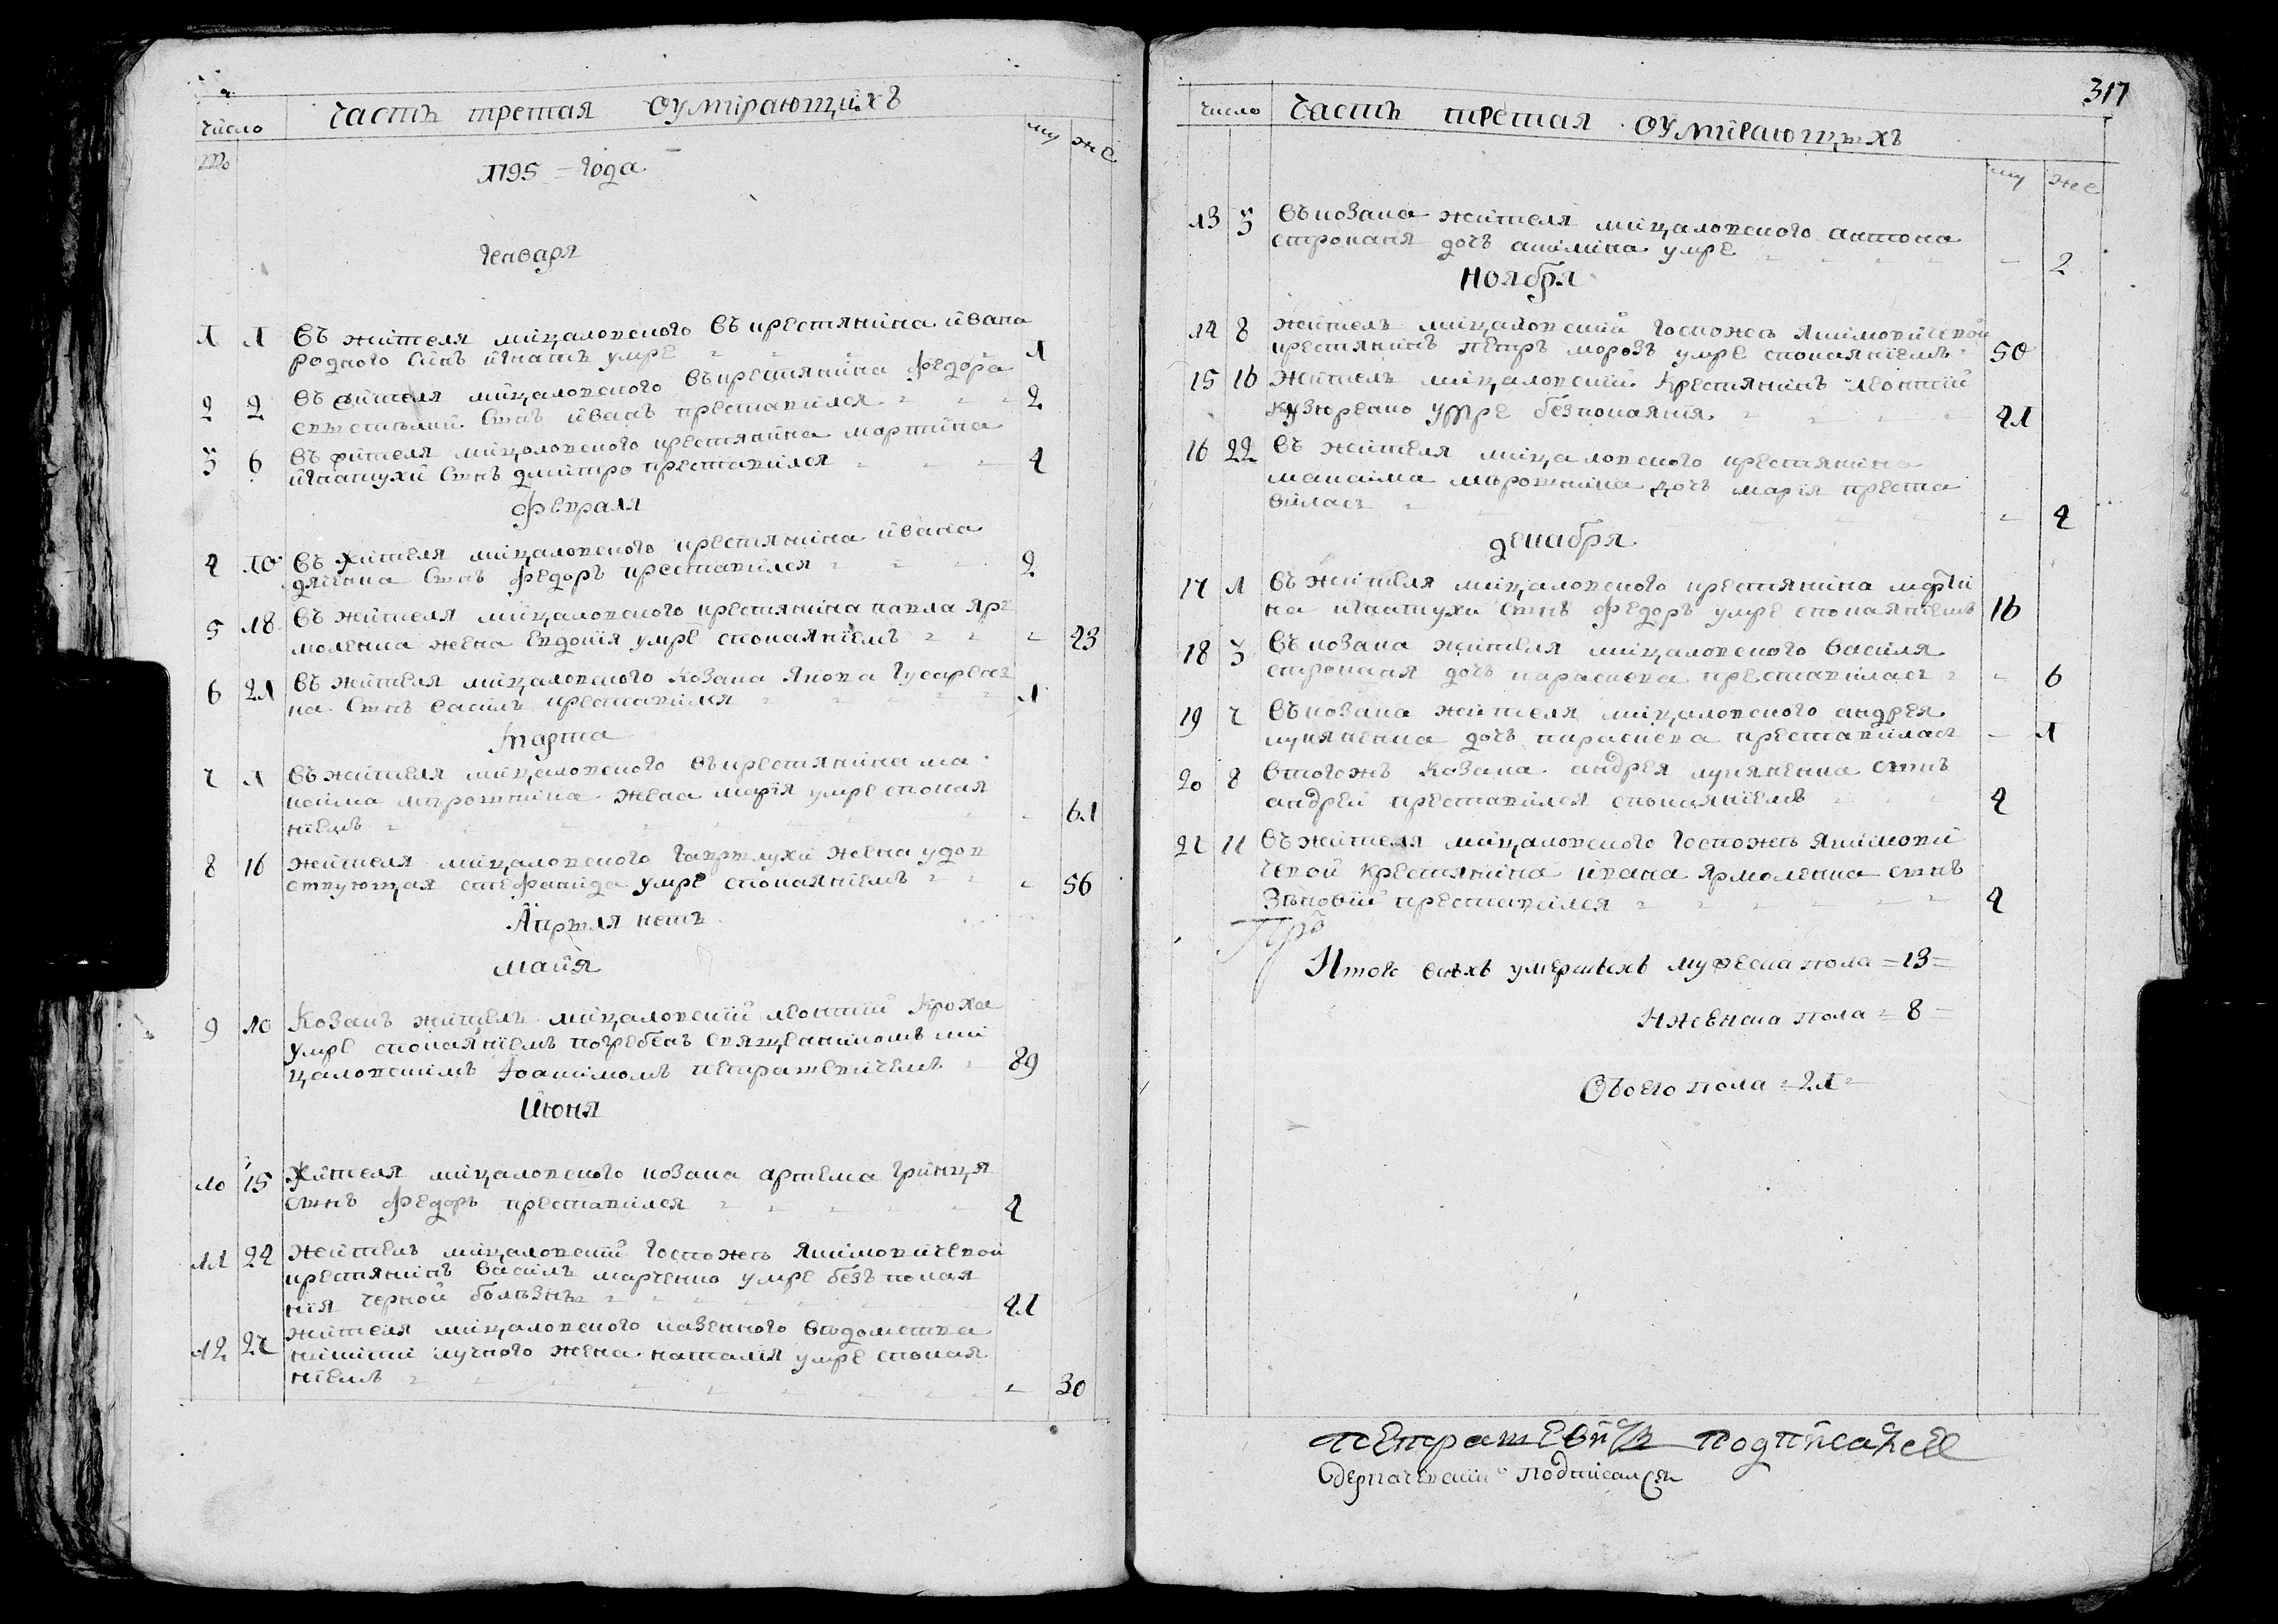 Часть третая оумирающихъ
число
му
же
1795 года
Генваря
1 1 Въ жителя мицаловского въ крестянина ивана
родного синъ игнатъ умре 1
2 2 Въ жителя мицаловского въ крестянина федора
синъ иванъ преставился 2
3 6 Въ жителя мицаловского крестянина мартина
игнатухи синъ дмитро преставился 4
февраля
4 10 Въ жителя мицаловского крестянина ивана
дячена синъ федоръ преставился 2
5 18 Въ жителя мицаловского крестянина павла яръ
моленка жена евдокія умре спокаяніемъ 43
6 21 Въ жителя мицаловского козака якова
ка синъ василь преставился 1
марта
7 1 Въ жителя мицаловского въ крестянина ма
каима жена марія умре спокая
ніемъ 61
8 16 жителя мицаловского жена удов
ствующая стефанида умре спокаяніемъ 56
Апрѣля нетъ
майя
9 10 Козакъ житель мицаловскій леонтій Кроха
умре спокаяніемъ погребенъ священикомъ ми
цаловскимъ Іоакимомъ петрашевичемъ 89
Июня
10 15 Жителя мицаловского козака артема гринця
синъ федоръ преставился 4
11 24 Житель мицаловскій госпожѣ якимовичевой
крестянинъ василь марченко умре безъ покая
нія черной болѣзнѣ 41
12 27 Жителя мицаловского казенного вѣдомства
микити лучного жена наталія умре спокая
ніемъ 30
317
число
Часть третая оумирающихъ
му
же
13 5 Въ козака жителя мицаловского антона
строканя дочъ акилина умре 2
Ноября
14 8 Житель мицаловскій госпожѣ якимовичевой
крестянинъ петръ морозъ умре спокаяніемъ 50
15 16 Житель мицаловскій крестянинъ леонтій
кузюренко умре безпокаянія 41
16 22 Въ жителя мицаловского крестянина
макаима дочъ марія преста
вилась 4
декабря
17 1 Въ жителя мицаловского крестянина марти
на игнатухи синъ федоръ умре спокаяніемъ 16
18 3 Въ козака жителя мицаловского василя
строканя дочъ параскева преставилась 6
19 7 Въ козака жителя мицаловского андрея
лукяненка дочъ параскева преставилась 1
20 8 Втогожъ козака андрея лукяненка синъ
андрей преставился спокаяніемъ 4
21 11 Въ жителя мицаловского госпожѣ якимови
чевой крестянина ивана ярмоленка синъ
Зѣновій преставился 4
Итого всѣхъ умершихъ мужеска пола = 13 =
И женска пола = 8 =
Обоего пола = 21 =
Петрашевичъ подписался
подписался